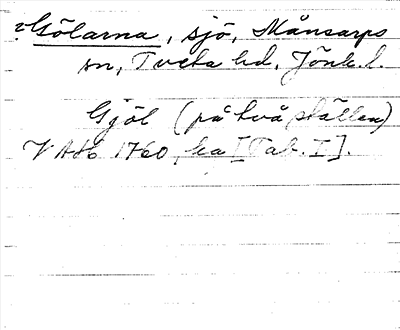 ?Gölarna, sjö, Månsarps
sn, Tveta hd, Jönk. l.
Gjöl (på två ställen)
VAH 1760, ka [Tab. I].